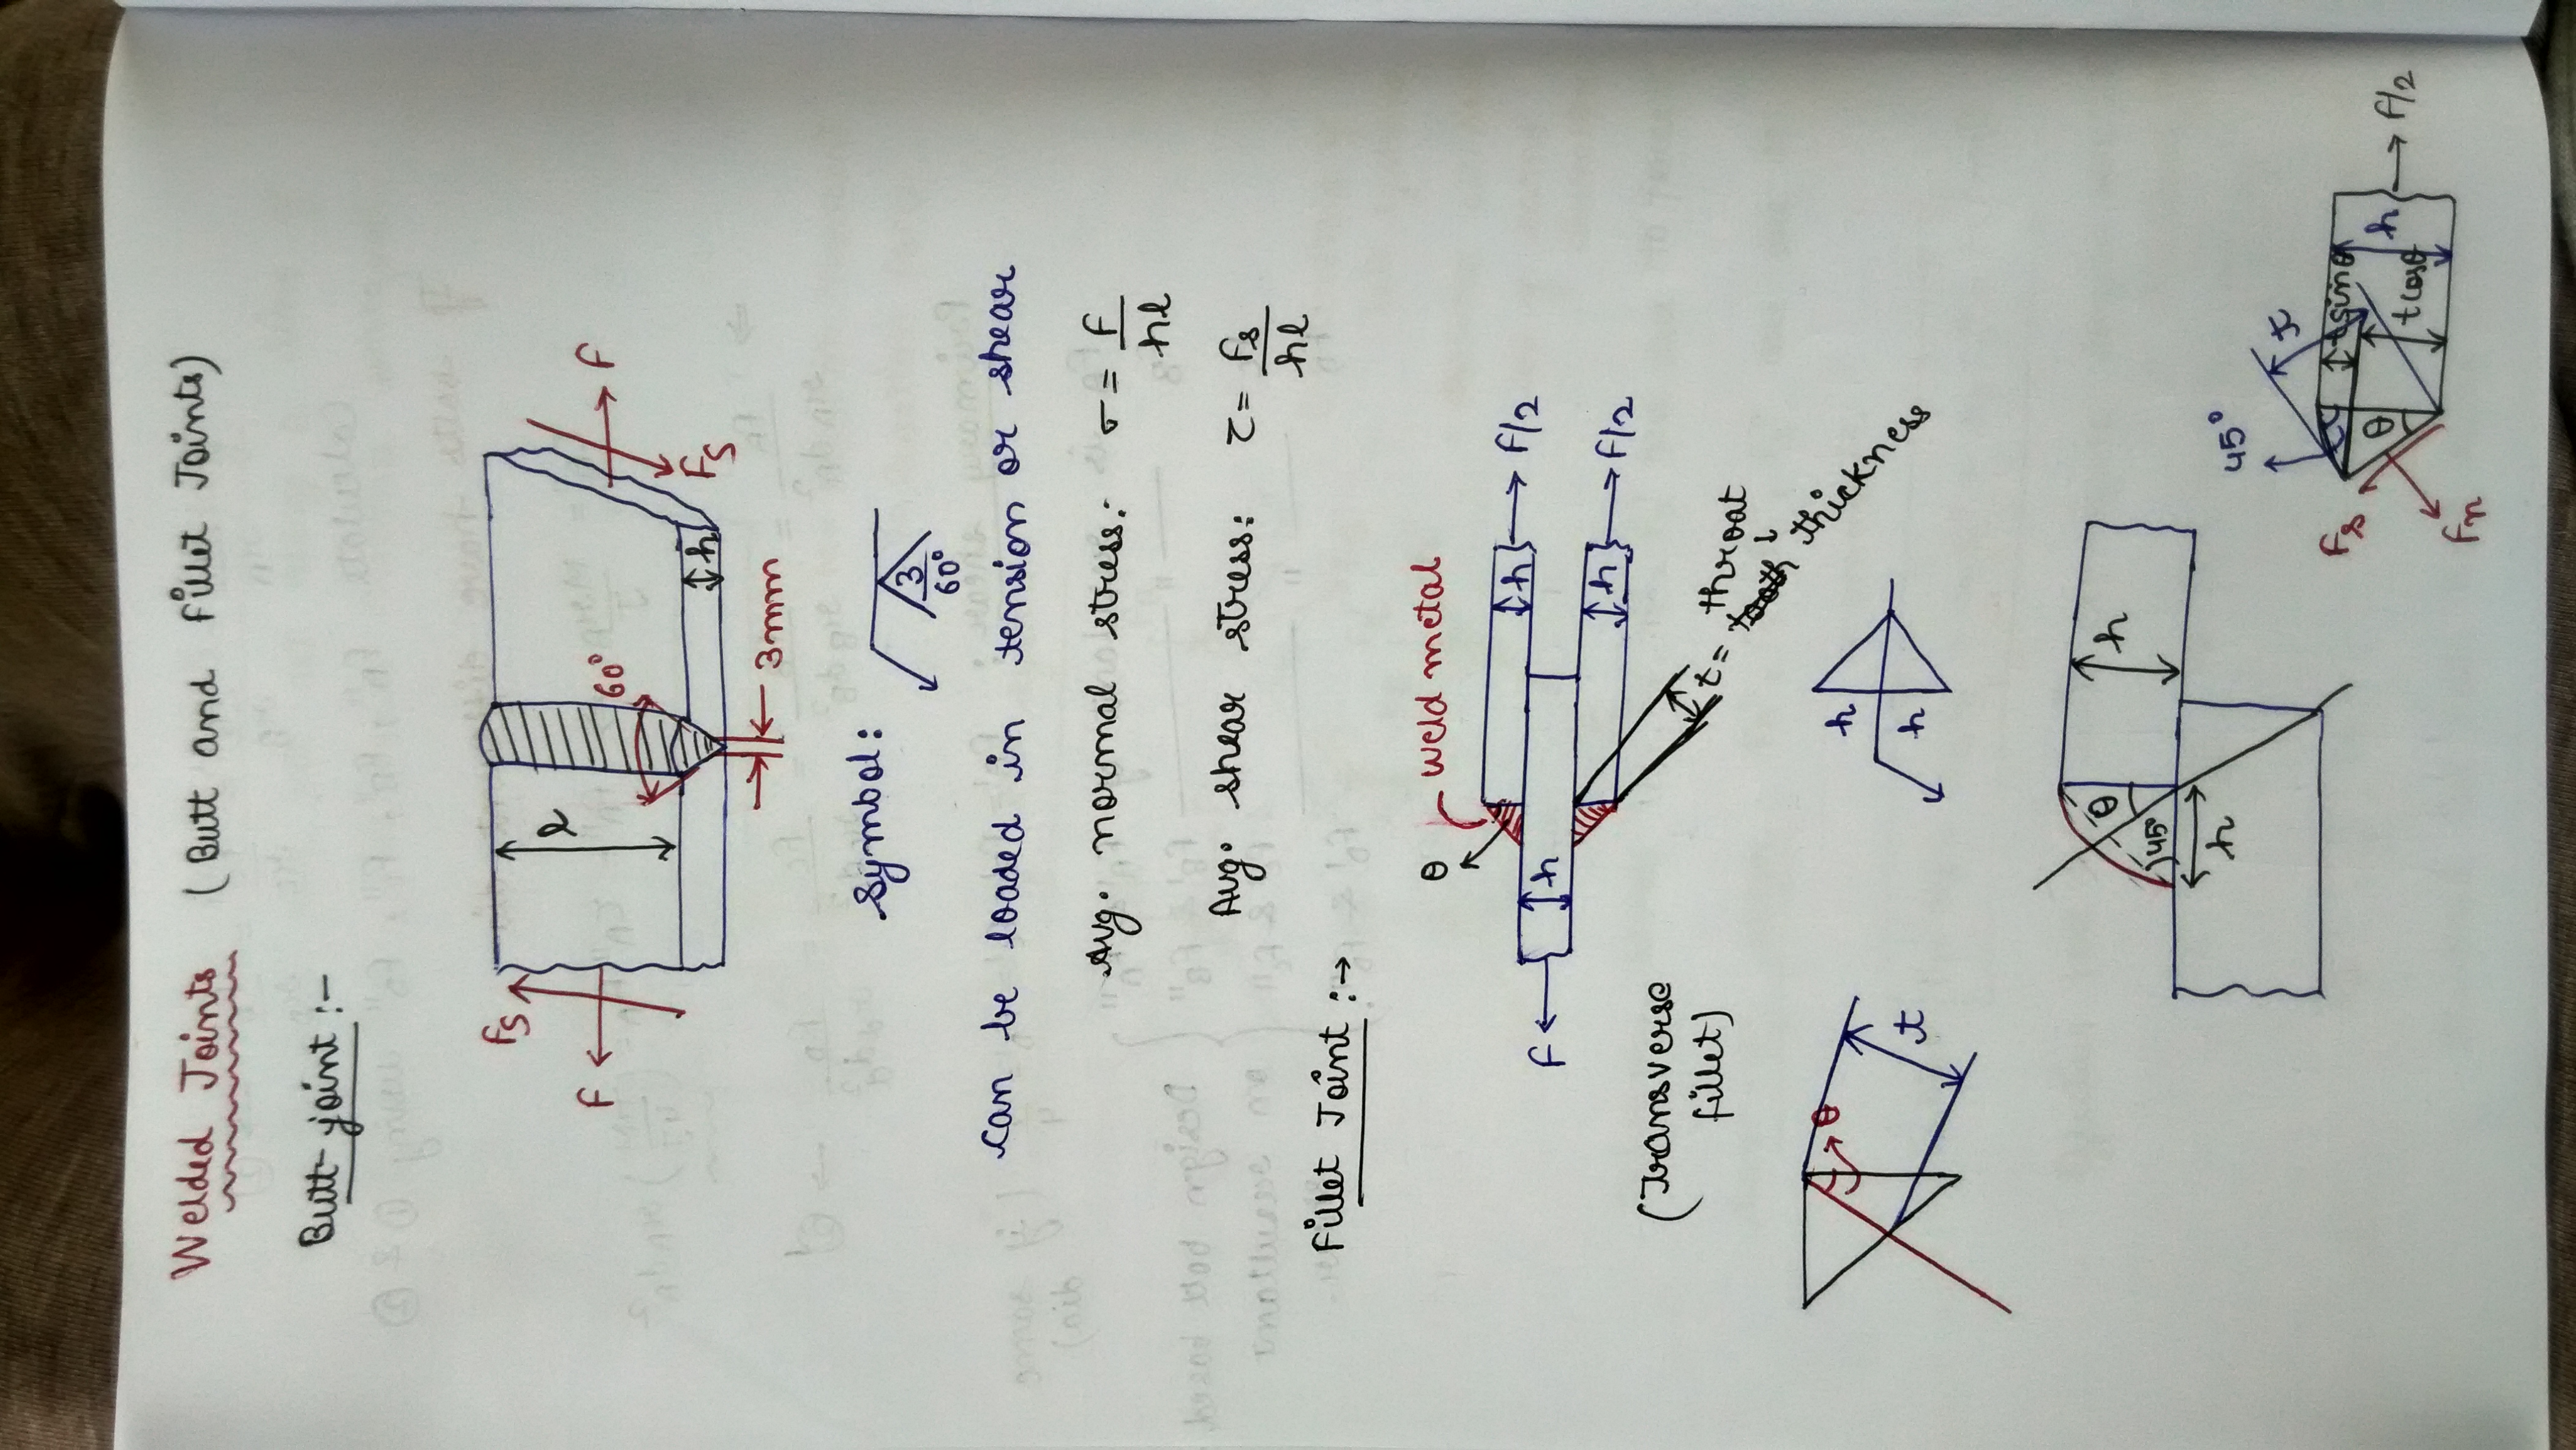 Welded Joints (Butt and Fillet Joints)
Butt joint :-
Fs
F
l
60°
F
h
Fs
3mm
Symbol:
3
60°
can be loaded in tension or shear
Avg. normal stress: σ = F/hl
Avg. shear stress: τ = Fs/hl
Fillet Joint :→
θ
weld metal
h
F/2
F
h
h
F/2
(Transverse
fillet)
t = throat
↓
thickness
θ
t
h
h
θ
h
45°
h
45°
t
Fs
t sinθ
θ
h
F/2
t cosθ
Fn